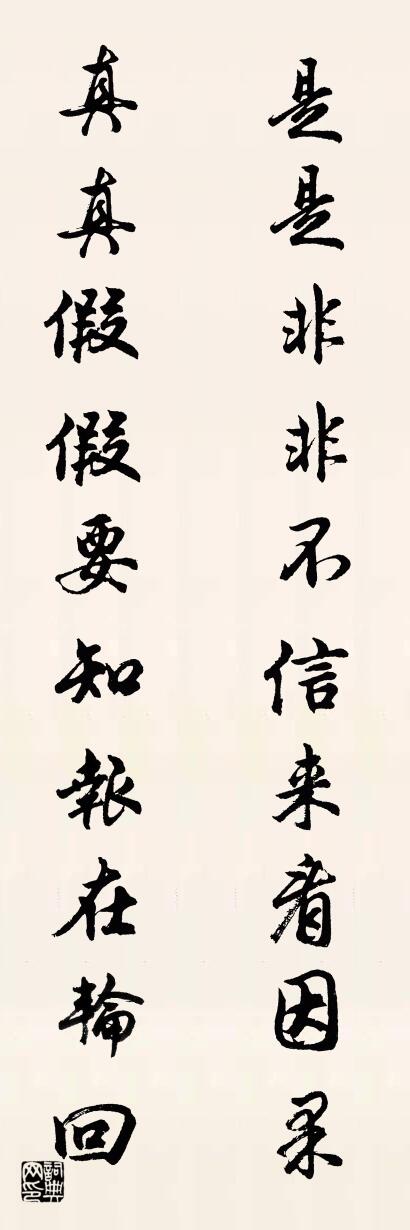 是是非非不信来看因果
真真假假要知報在輪回
詞典网印